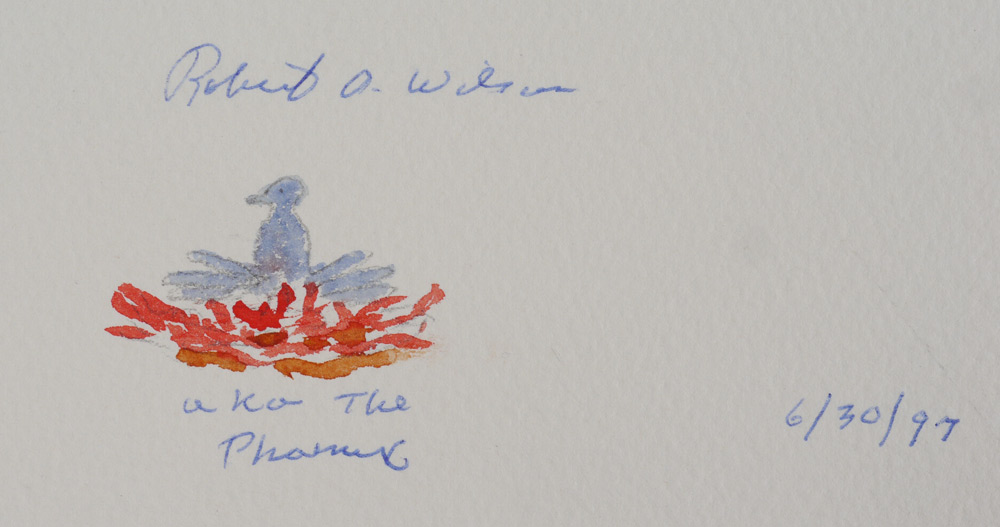 Robert A. Wilson
aka The
Phoenix
6/30/97